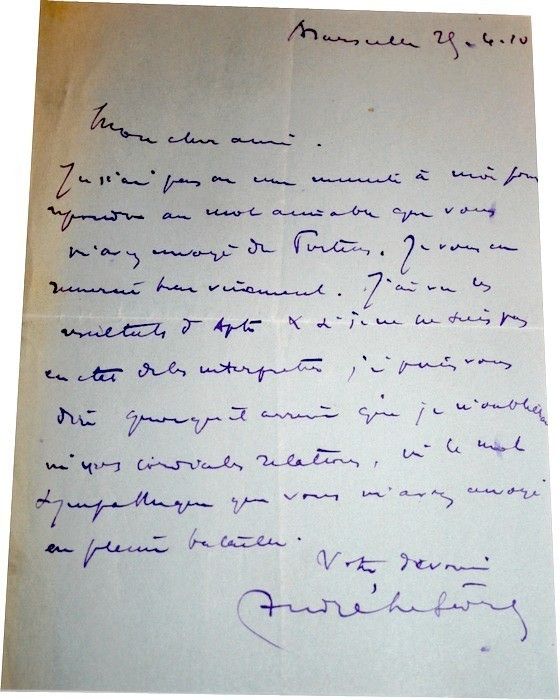 Marseille 25.4.10
Mon cher ami.
Je n'ai pas eu une minute à moi pour
répondre au mot aimable que vous
m'avez envoyé de Pertuis. Je vous en
remercie bien vivement. J'ai vu les
résultats d'Apt & si je ne me suis pas
en état de les interpreter, je puis vous
dire quoiqu'il arrive que je n'oublierai
ni vos cordiales relations, ni le mot
sympathique que vous m'avez envoyé
en pleine bataille.
Votre dévoué
André Lefèvre